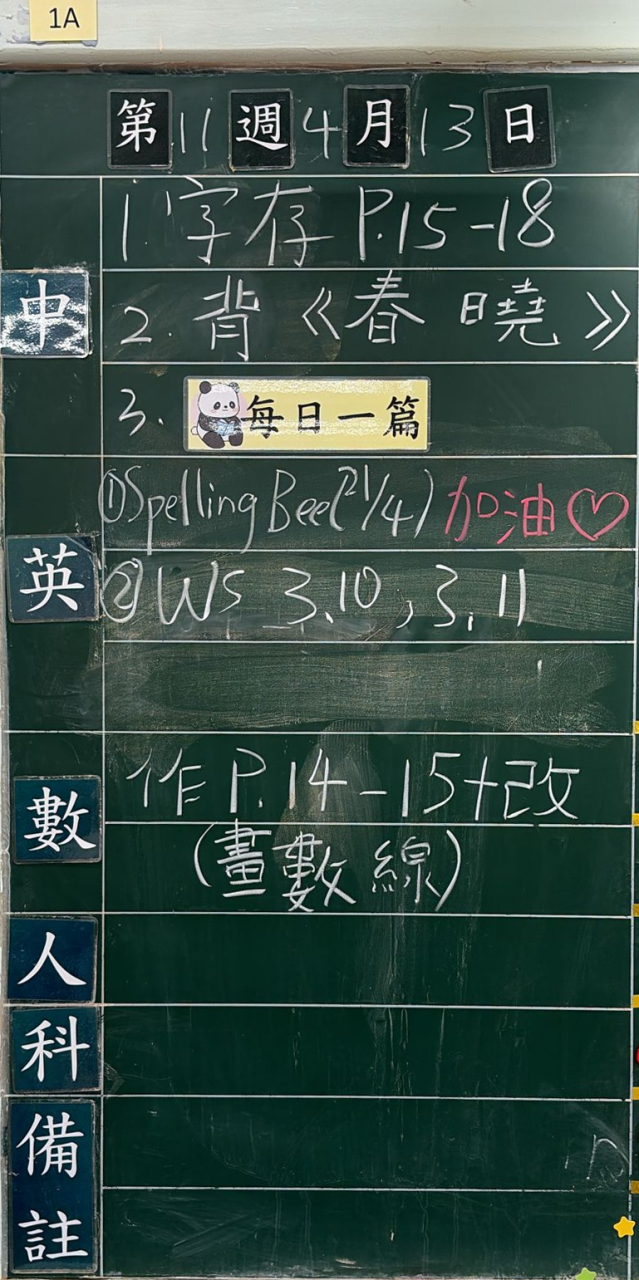 1A
第11週4月13日
1. 字存 P.15-18
中
2. 背《春曉》
3. 每日一篇
①Spelling Bee(21/4) 加油♡
英
②WS 3.10, 3.11
作 P.14-15+改
數
(畫數線)
人
科
備
註